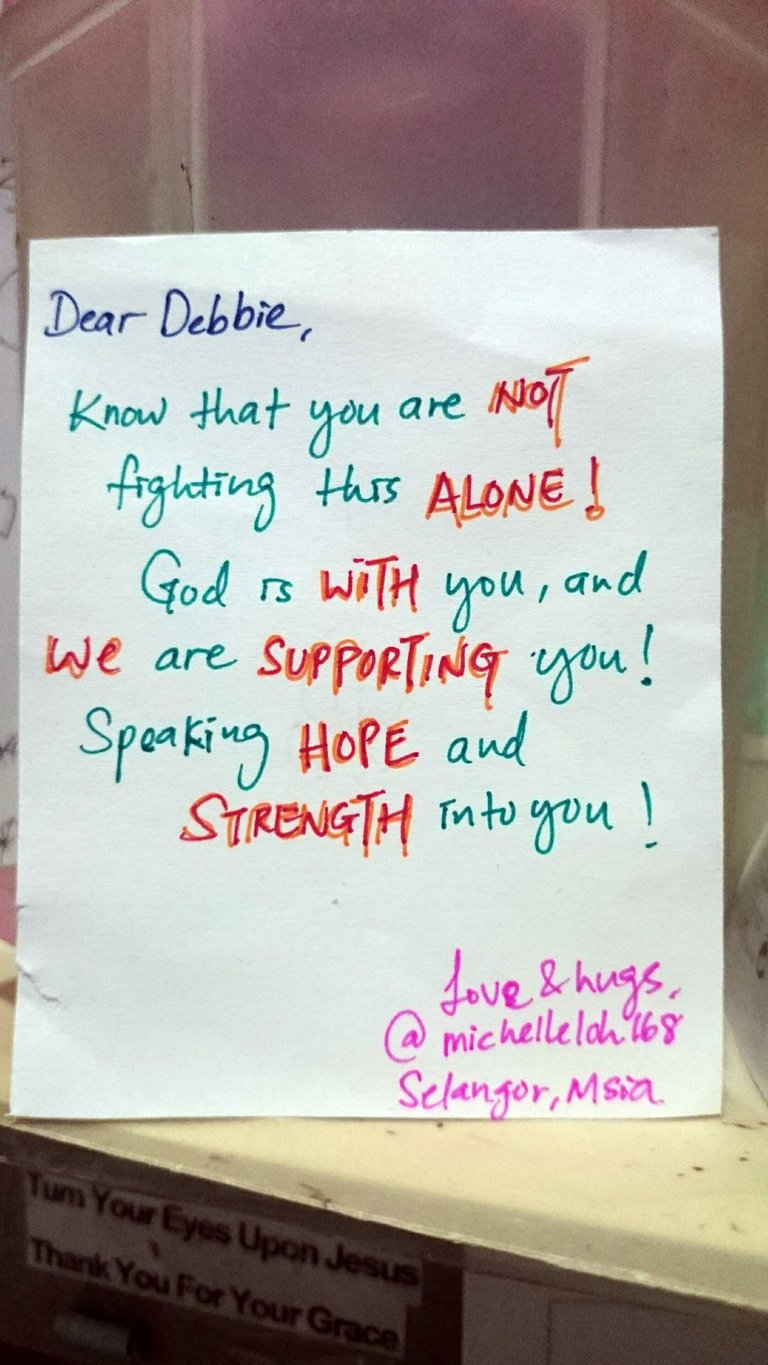 Dear Debbie,
Know that you are NOT
fighting this ALONE!
God is WITH you, and
WE are SUPPORTING you!
Speaking HOPE and
STRENGTH into you!
Love & hugs,
@michelleloh168
Selangor, Msia.
Turn Your Eyes Upon Jesus
Thank You For Your Grace